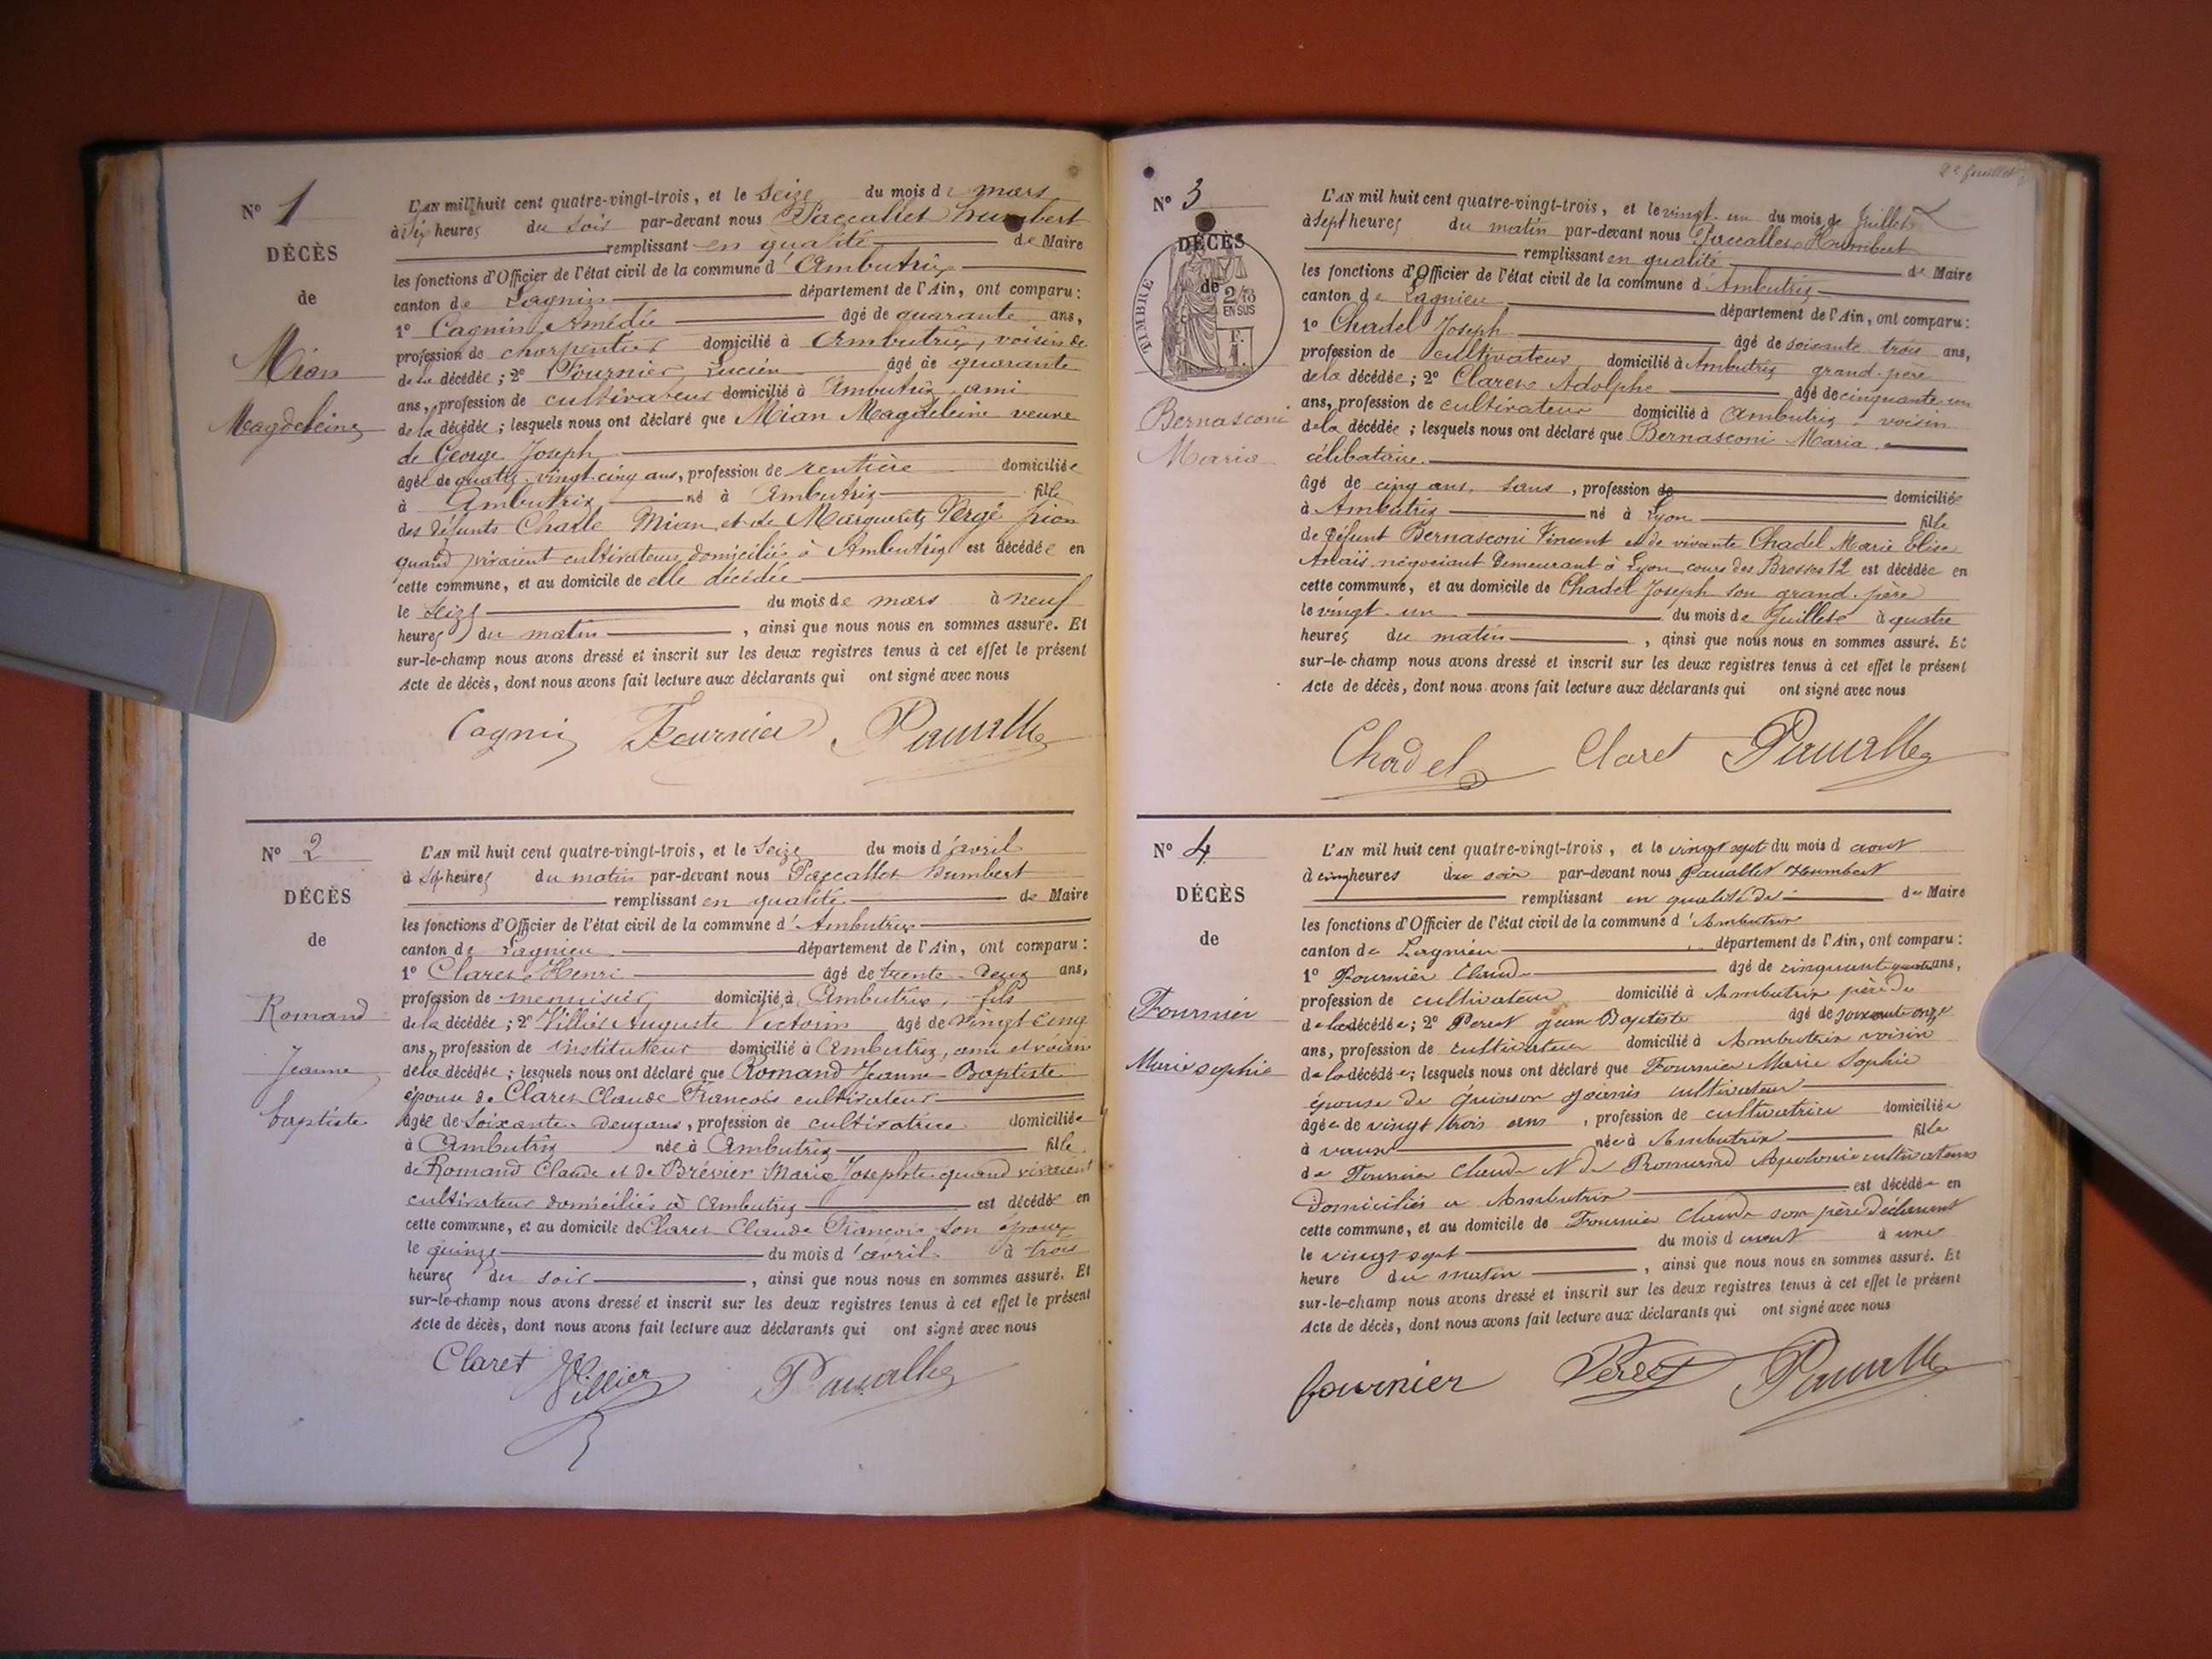 Nº 1
DÉCÈS
de
Mian
Magdeleine
L'AN mil huit cent quatre-vingt-trois, et le Seize du mois de mars
à Six heures du soir par-devant nous Paccallet humbert
remplissant en qualité de Maire
les fonctions d'Officier de l'état civil de la commune d'Ambutrix
canton de Lagnieu département de l'Ain, ont comparu :
1º Cagnin Amédée âgé de quarante ans,
profession de charpentier domicilié à Ambutrix, voisin de
de la décédée ; 2º Fournier Lucien âgé de quarante
ans, profession de cultivateur domicilié à Ambutrix ami
de la décédée ; lesquels nous ont déclaré que Mian Magdeleine veuve
de George Joseph
âgée de quatre-vingt-cinq ans, profession de rentière domiciliée
à Ambutrix né à Ambutrix fille
des défunts Charle Mian et de Marguerite Vergé pion
quand vivaient cultivateurs domiciliés à Ambutrix est décédée en
cette commune, et au domicile de elle décédée
le Seize du mois de mars à neuf
heures du matin, ainsi que nous nous en sommes assuré. Et
sur-le-champ nous avons dressé et inscrit sur les deux registres tenus à cet effet le présent
Acte de décès, dont nous avons fait lecture aux déclarants qui ont signé avec nous
Cagnin Fournier Paccallet
Nº 2
DÉCÈS
de
Romand
Jeanne
baptiste
L'AN mil huit cent quatre-vingt-trois, et le Seize du mois d'avril
à Sept heures du matin par-devant nous Paccallet humbert
remplissant en qualité de Maire
les fonctions d'Officier de l'état civil de la commune d'Ambutrix
canton de Lagnieu département de l'Ain, ont comparu :
1º Claret Henri âgé de trente-deux ans,
profession de menuisier domicilié à Ambutrix, fils
de la décédée ; 2º Villier Auguste Victorin âgé de vingt cinq
ans, profession de instituteur domicilié à Ambutrix, ami et voisin
de la décédée ; lesquels nous ont déclaré que Romand Jeanne-Baptiste
épouse de Claret Claude-François cultivateur
âgée de Soixante-deux ans, profession de cultivatrice domiciliée
à Ambutrix née à Ambutrix fille
de Romand Claude et de Brévier Marie Josephte quand vivaient
cultivateur domiciliés à Ambutrix est décédée en
cette commune, et au domicile de Claret Claude François son époux
le quinze du mois d'avril à trois
heures du soir, ainsi que nous nous en sommes assuré. Et
sur-le-champ nous avons dressé et inscrit sur les deux registres tenus à cet effet le présent
Acte de décès, dont nous avons fait lecture aux déclarants qui ont signé avec nous
Claret Villier Paccallet
2e feuillet
Nº 3
DÉCÈS
de
TIMBRE
2/10
EN SUS
F.
1.
Bernasconi
Maria
L'AN mil huit cent quatre-vingt-trois, et le vingt-un du mois de Juillet
à Sept heures du matin par-devant nous Paccallet Humbert
remplissant en qualité de Maire
les fonctions d'Officier de l'état civil de la commune d'Ambutrix
canton de Lagnieu département de l'Ain, ont comparu :
1º Chadel Joseph âgé de soixante trois ans,
profession de cultivateur domicilié à Ambutrix grand-père
de la décédée ; 2º Claret Adolphe âgé de cinquante un
ans, profession de cultivateur domicilié à Ambutrix voisin
de la décédée ; lesquels nous ont déclaré que Bernasconi Maria
célibataire
âgé de cinq ans, sans, profession de domiciliée
à Ambutrix né à Lyon fille
de défunt Bernasconi Vincent et de vivante Chadel Marie Elise
Anaïs négociant demeurant à Lyon cours des Brosses 12 est décédée en
cette commune, et au domicile de Chadel Joseph son grand-père
le vingt-un du mois de Juillet à quatre
heures du matin, ainsi que nous nous en sommes assuré. Et
sur-le-champ nous avons dressé et inscrit sur les deux registres tenus à cet effet le présent
Acte de décès, dont nous avons fait lecture aux déclarants qui ont signé avec nous
Chadel Claret Paccallet
Nº 4
DÉCÈS
de
Fournier
Marie sophie
L'AN mil huit cent quatre-vingt-trois, et le vingt sept du mois d aout
à cinq heures du soir par-devant nous Pacallet Humbert
remplissant en qualité de de Maire
les fonctions d'Officier de l'état civil de la commune d'Ambutrix
canton de Lagnieu département de l'Ain, ont comparu :
1º Fournier Claude âgé de cinquante quatre ans,
profession de cultivateur domicilié à Ambutrix père de
de la décédée ; 2º Peret Jean Baptiste âgé de soixante onze
ans, profession de cultivateur domicilié à Ambutrix voisin
de la décédée ; lesquels nous ont déclaré que Fournier Marie Sophie
épouse de Quinson Joanis cultivateur
âgée de vingt trois ans, profession de cultivatrice domiciliée
à vaux née à Ambutrix fille
de Fournier Claude et de Romand Apolonie cultivateurs
Domiciliés a Ambutrix est décédée en
cette commune, et au domicile de Fournier Claude son père déclarant
le vingt sept du mois d aout à une
heure du matin, ainsi que nous nous en sommes assuré. Et
sur-le-champ nous avons dressé et inscrit sur les deux registres tenus à cet effet le présent
Acte de décès, dont nous avons fait lecture aux déclarants qui ont signé avec nous
fournier Peret Paccallet